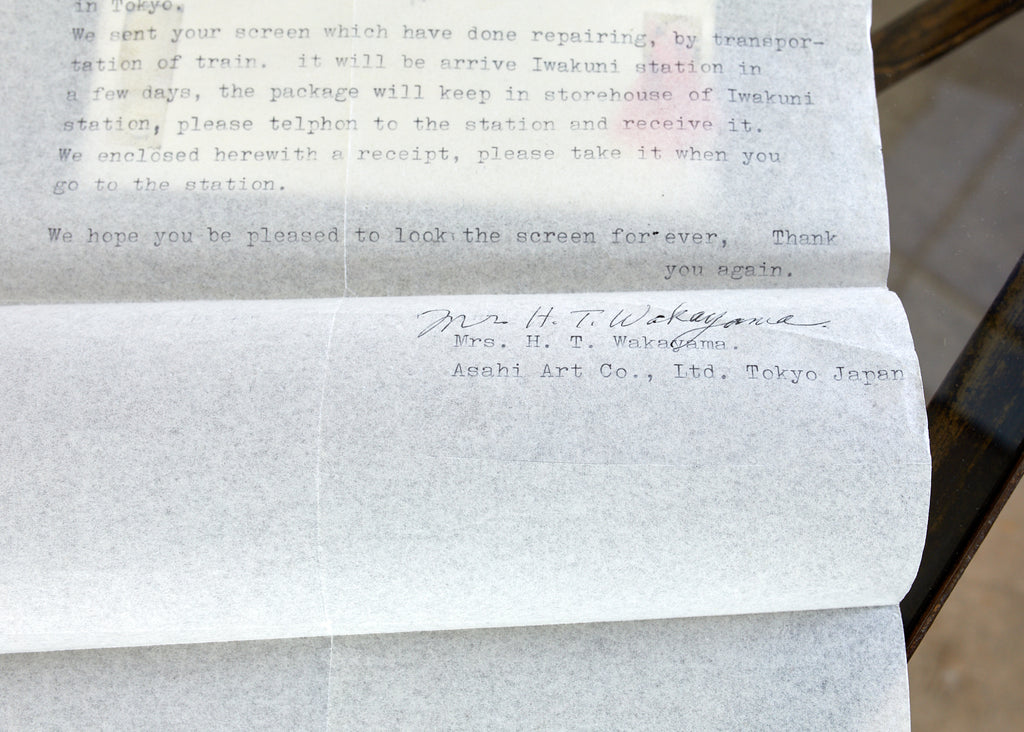 in Tokyo.
We sent your screen which have done repairing, by transpor-
tation of train.  it will be arrive Iwakuni station in
a few days, the package will keep in storehouse of Iwakuni
station, please telphon to the station and receive it.
We enclosed herewith a receipt, please take it when you
go to the station.
We hope you be pleased to look the screen for ever,   Thank
you again.
Mrs H. T. Wakayama.
Mrs. H. T. Wakayama.
Asahi Art Co., Ltd. Tokyo Japan